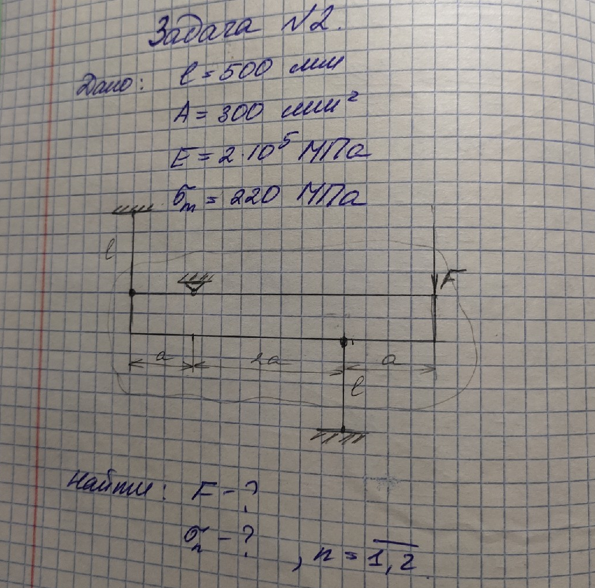 Задача №2.
Дано: l = 500 мм
A = 300 мм²
E = 2·10⁵ МПа
σт = 220 МПа
l
F
a 2a a
l
Найти: F - ?
σn - ? , n = 1,2